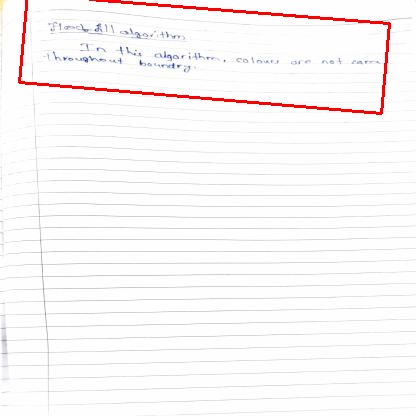 Flood fill algorithm
In this algorithm, colours are not same
throughout boundry.